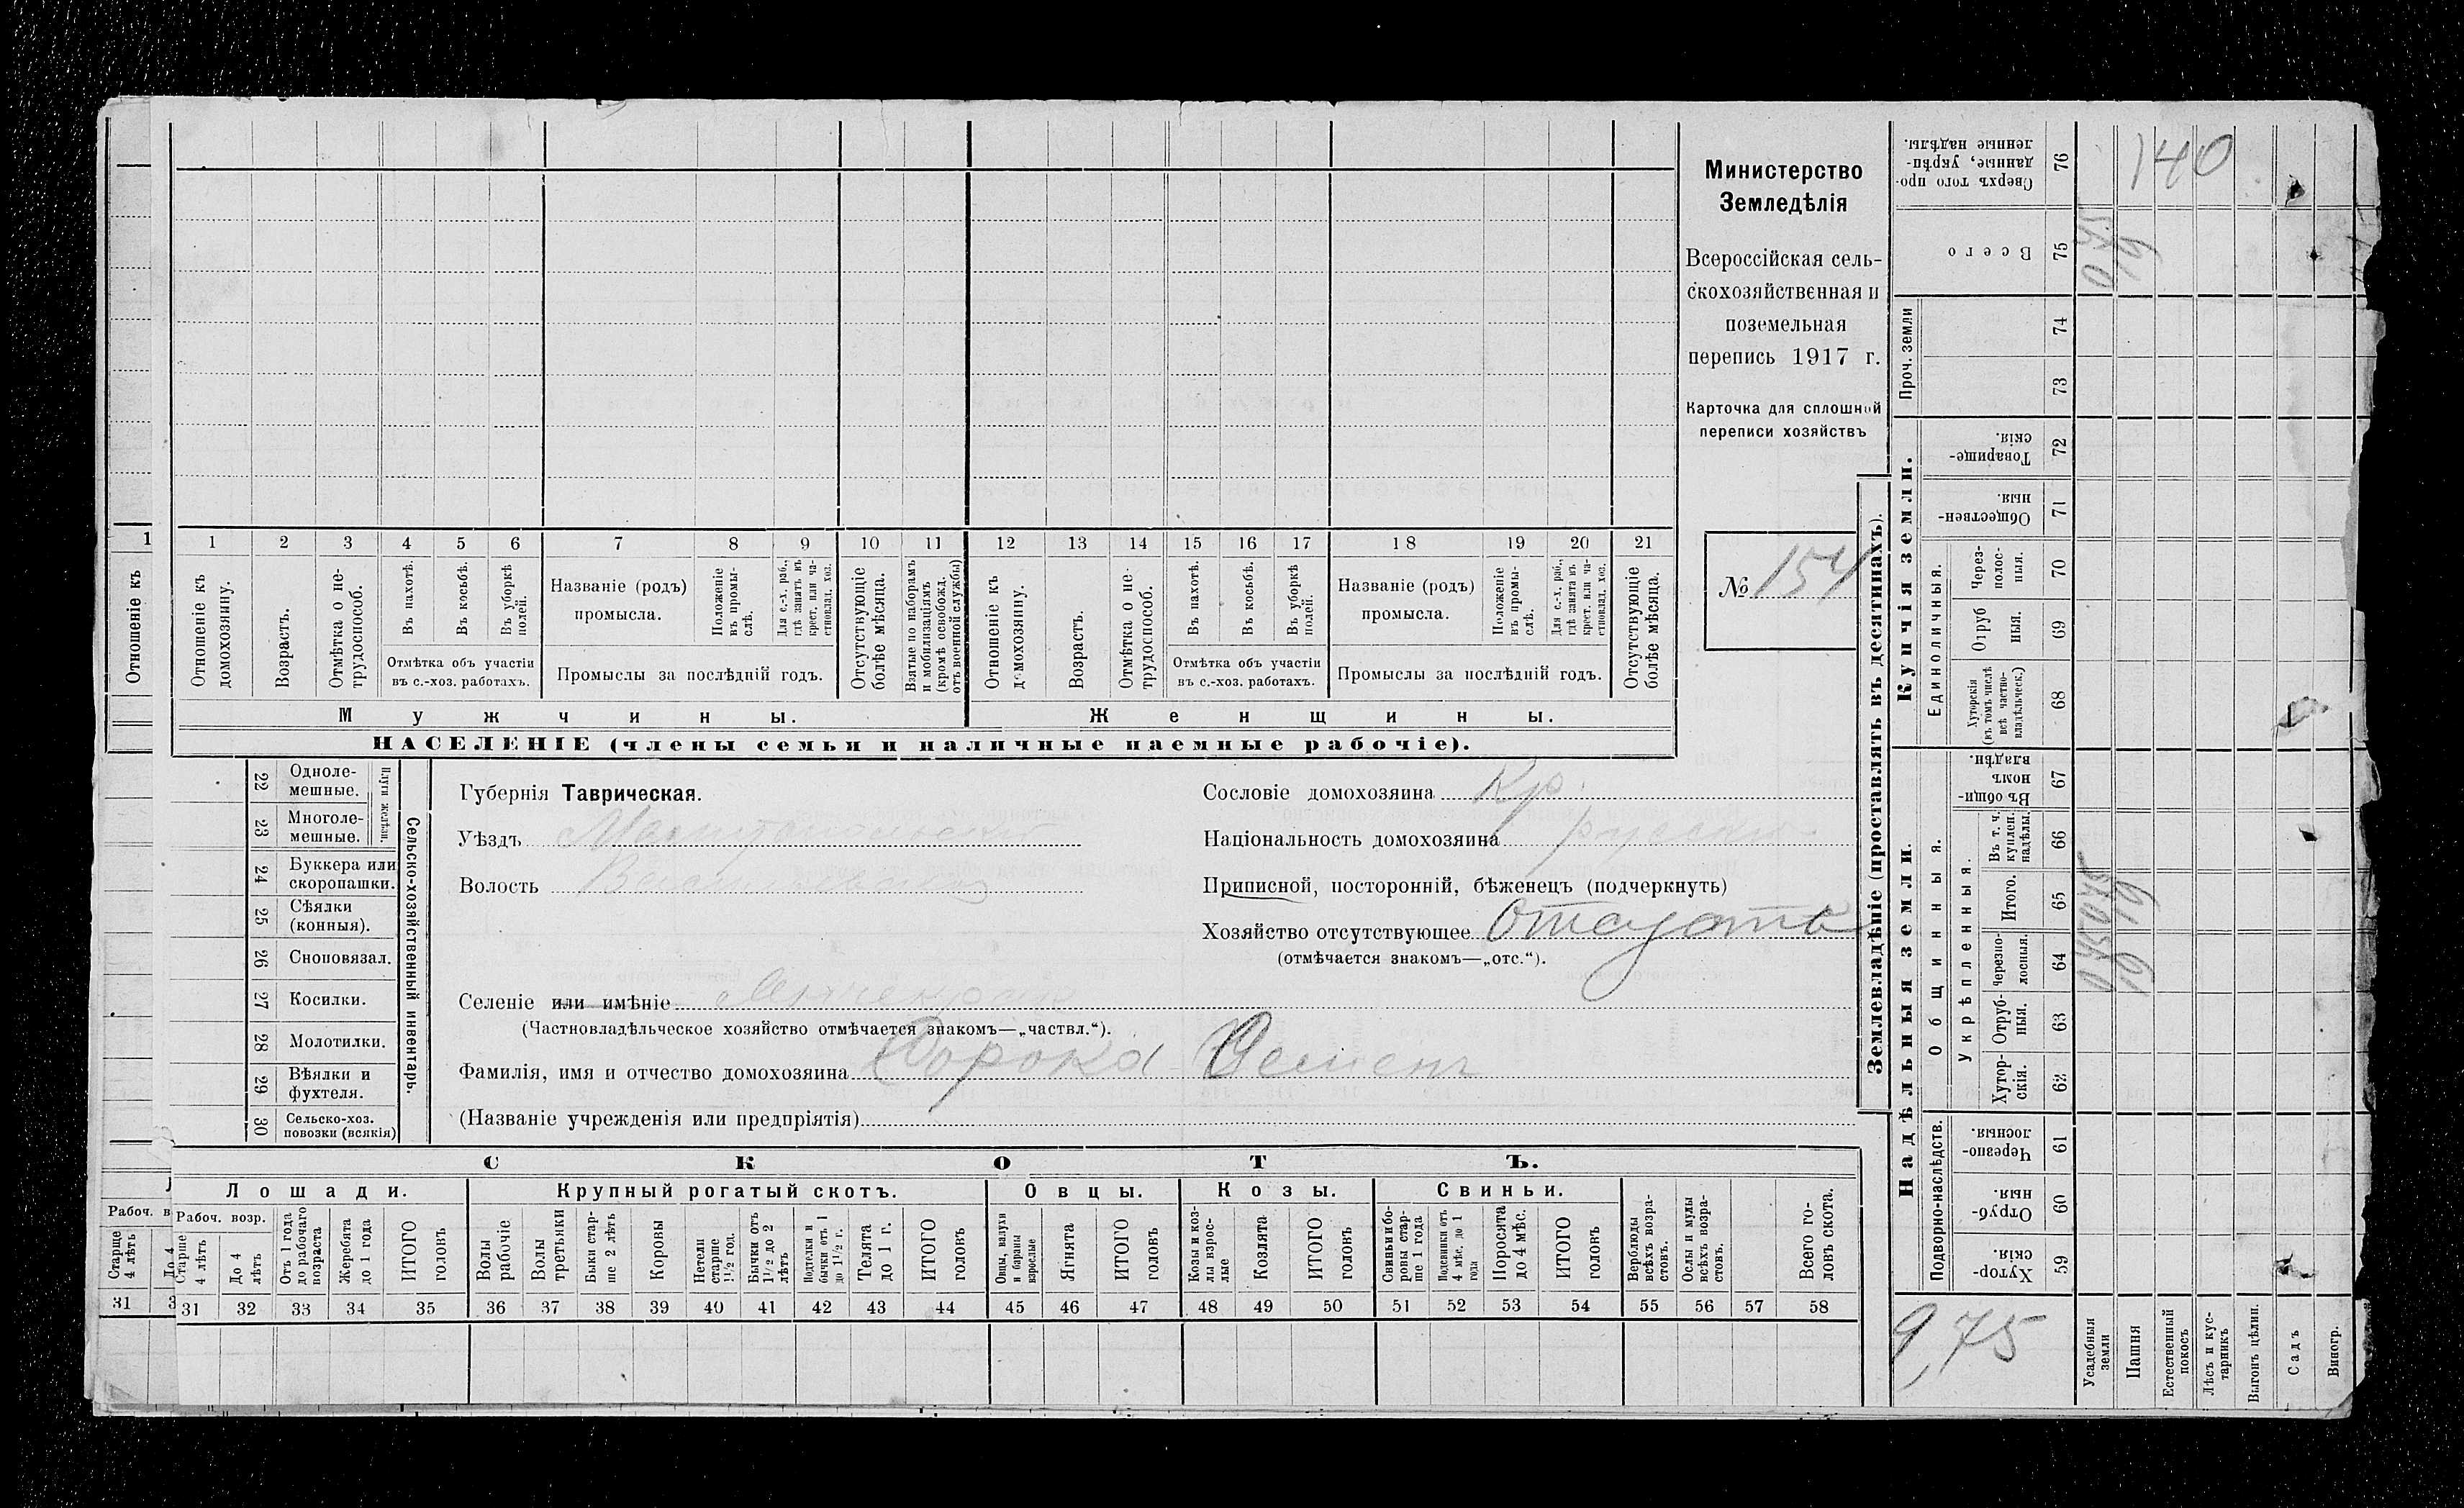 Министерство
Земледѣлія
Всероссійская сель-
скохозяйственная и
поземельная
перепись 1917 г.
Карточка для сплошной
переписи хозяйствъ
№ 154
1 2 3 4 5 6 7 8 9 10 11 12 13 14 15 16 17 18 19 20 21
Отношеніе къ домохозяину.
Возрастъ.
Отмѣтка о не-трудоспособ.
Въ пахотѣ.
Въ косьбѣ.
Въ уборкѣ полей.
Отмѣтка объ участіи
въ с.-хоз. работахъ.
Названіе (родъ)
промысла.
Положеніе въ промы-слѣ.
Для с.-х. раб., гдѣ занятъ въ крест. или ча-стновлад. хоз.
Промыслы за послѣдній годъ.
Отсутствующіе болѣе мѣсяца.
Взятые по наборамъ и мобилизаціямъ (кромѣ освобожд. отъ военной службы)
Отношеніе къ домохозяину.
Возрастъ.
Отмѣтка о не-трудоспособ.
Въ пахотѣ.
Въ косьбѣ.
Въ уборкѣ полей.
Отмѣтка объ участіи
въ с.-хоз. работахъ.
Названіе (родъ)
промысла.
Положеніе въ промы-слѣ.
Для с.-х. раб., гдѣ занята въ крест. или ча-стновлад. хоз.
Промыслы за послѣдній годъ.
Отсутствующіе болѣе мѣсяца.
Мужчины.
Женщины.
НАСЕЛЕНІЕ (члены семьи и наличные наемные рабочіе).
1
Отношеніе къ
22 Одноле-мешные.
23 Многоле-мешные.
Плуги желѣзн.
24 Буккера или скоропашки.
25 Сѣялки (конныя).
26 Сноповязал.
27 Косилки.
28 Молотилки.
29 Вѣялки и фухтеля.
30 Сельско-хоз. повозки (всякія)
Сельско-хозяйственный инвентарь.
Губернія Таврическая.
Уѣздъ
Волость
Селеніе или имѣніе
(Частновладѣльческое хозяйство отмѣчается знакомъ—„частвл.“).
Фамилія, имя и отчество домохозяина Семенъ
(Названіе учрежденія или предпріятія)
Сословіе домохозяина Кр.
Національность домохозяина
Приписной, посторонній, бѣженецъ (подчеркнуть)
Хозяйство отсутствующее
(отмѣчается знакомъ—„отс.“).
СКОТЪ.
Лошади.
Рабоч. возр.
Старше 4 лѣтъ
До 4 лѣтъ
Отъ 1 года до рабочаго возраста
Жеребята до 1 года
ИТОГО головъ
Крупный рогатый скотъ.
Волы рабочіе
Волы третьяки
Быки стар-ше 2 лѣтъ
Коровы
Нетели старше 1½ год.
Бычки отъ 1½ до 2 лѣтъ
Подтелки и бычки отъ 1 до 1½ г.
Телята до 1 г.
ИТОГО головъ
Овцы.
Овцы, валухи и бараны взрослые
Ягнята
ИТОГО головъ
Козы.
Козы и коз-лы взрос-лые
Козлята
ИТОГО головъ
Свиньи.
Свиньи и бо-ровы стар-ше 1 года
Подсвинки отъ 4 мѣс. до 1 года
Поросята до 4 мѣс.
ИТОГО головъ
Верблюды всѣхъ возра-стовъ.
Ослы и мулы всѣхъ возра-стовъ.
Всего го-ловъ скота.
31 32 33 34 35 36 37 38 39 40 41 42 43 44 45 46 47 48 49 50 51 52 53 54 55 56 57 58
Рабоч. в
Старше 4 лѣтъ
До 4
31
Землевладѣніе (проставлять въ десятинахъ).
Купчія земли.
Надѣльныя земли.
Сверхъ того про-данные, укрѣп-ленные надѣлы. 76
140
Всего 75
Проч. земли
74
73
Товарище-скія. 72
Обществен-ныя. 71
Единоличныя.
Через-полос-ныя. 70
Отруб ныя. 69
Хуторскія (въ томъ числѣ всѣ частно-владѣльческ.) 68
Общинныя.
Въ общи-номъ владѣн. 67
Укрѣпленныя.
Въ т. ч. куплен. надѣлы. 66
Итого. 65
черезпо-лосныя. 64
Отруб-ныя. 63
Хутор-скія. 62
Подворно-наслѣдств.
Черезпо-лосныя. 61
Отруб-ныя. 60
Хутор-скія. 59
9,75
Усадебныя земли
Пашня
Естественный покосъ
Лѣсъ и кус-тарникъ
Выгонъ цѣлин.
Садъ
Виногр.